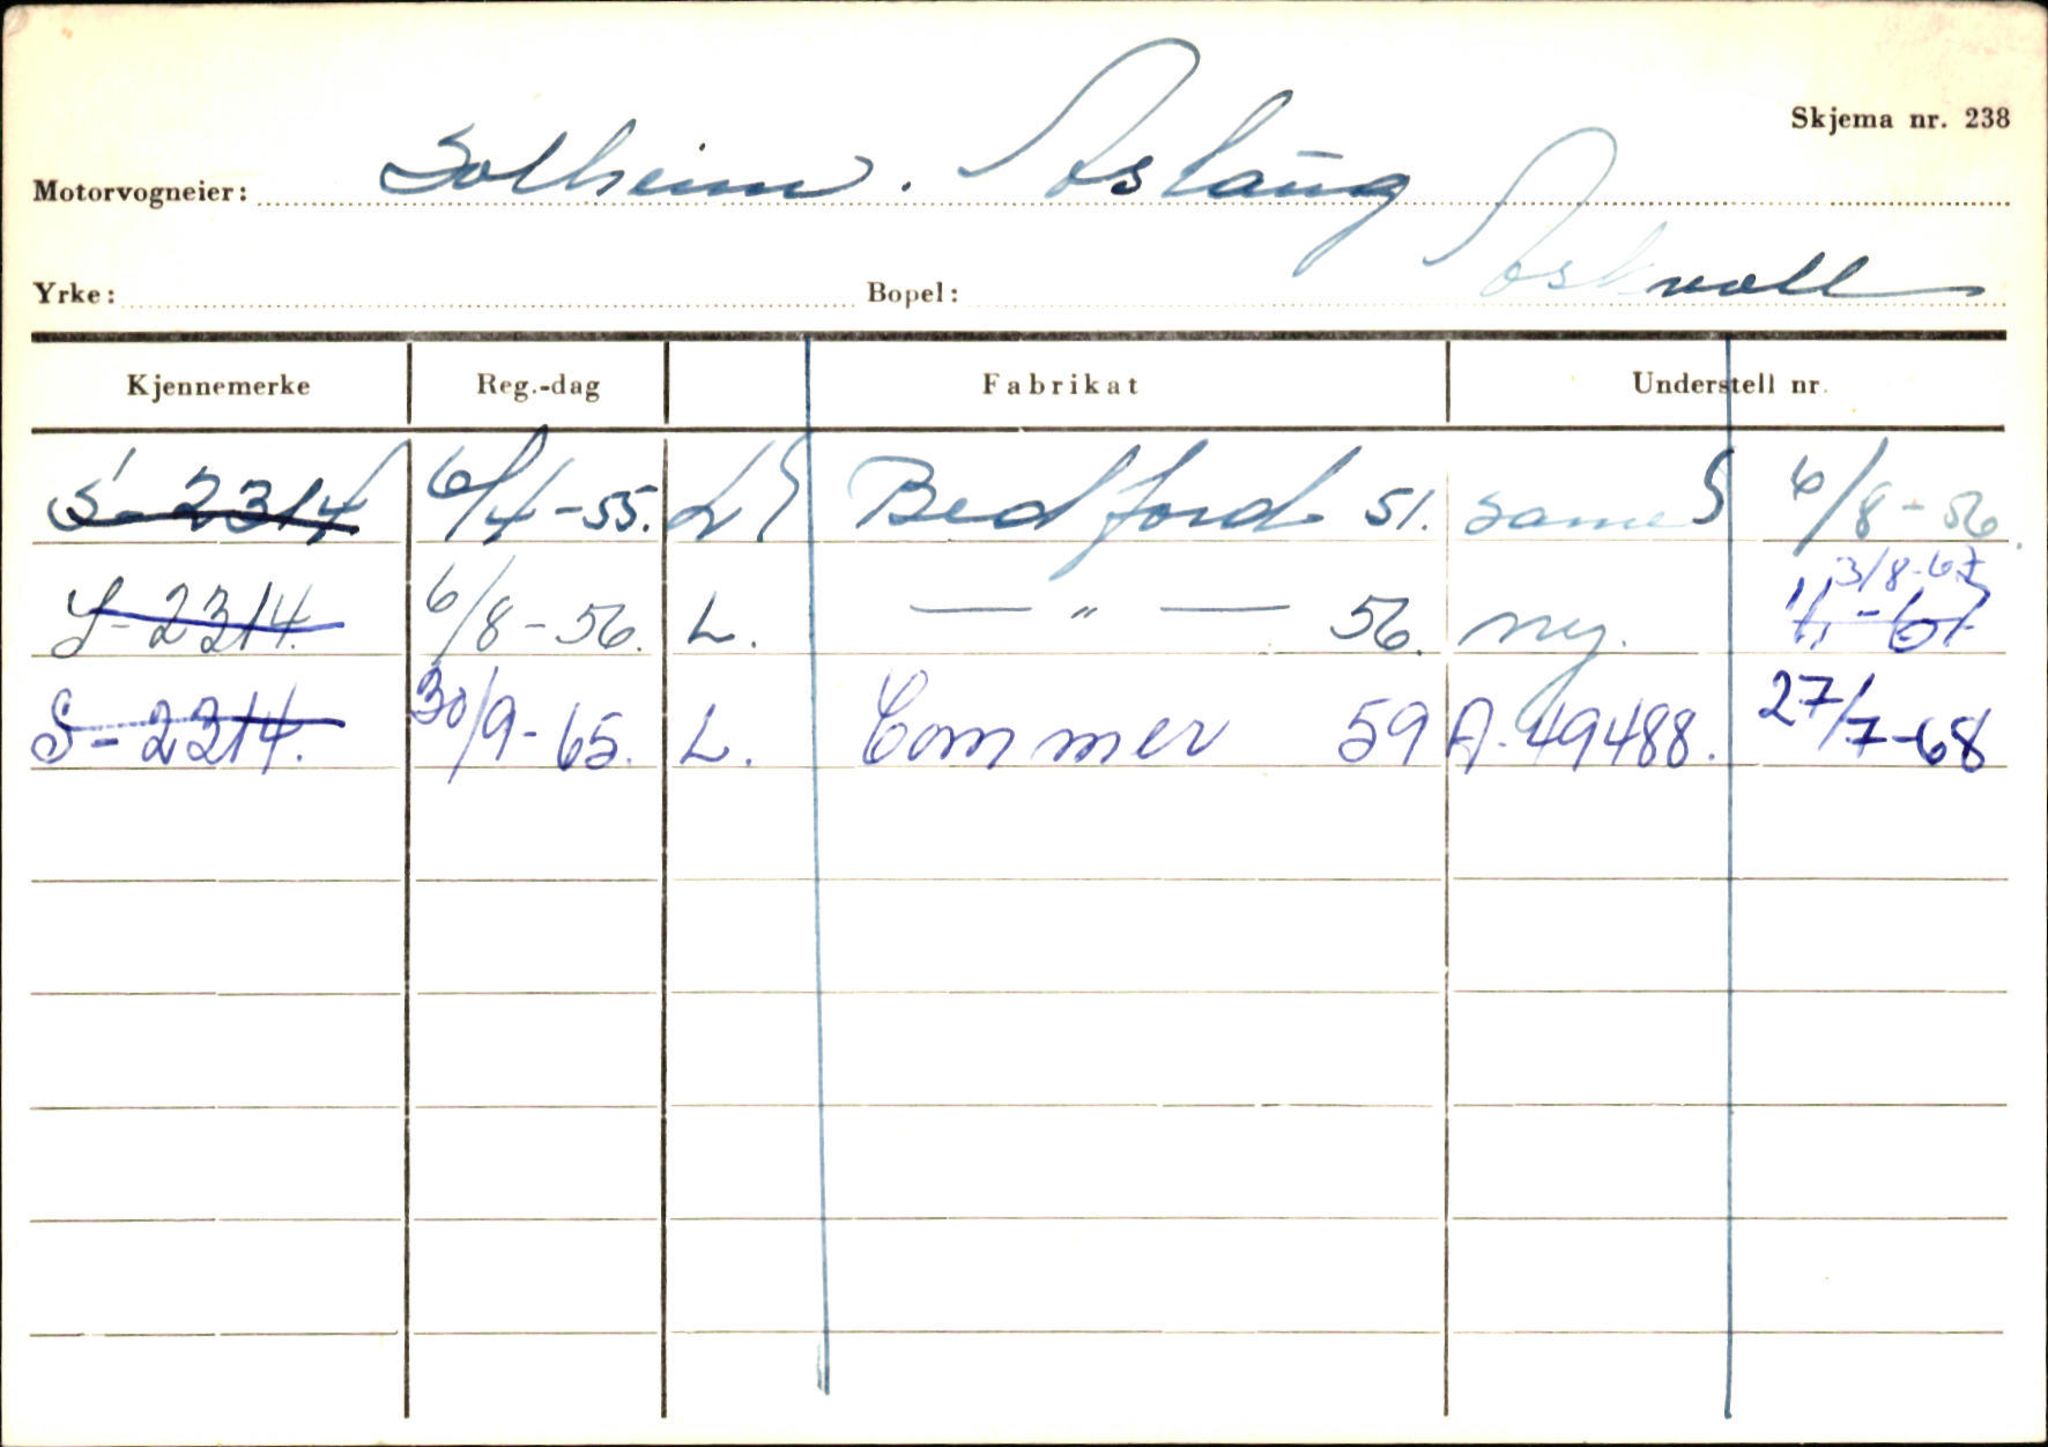 Skjema nr. 238
Motorvogneier: Solheim. Aslaug
Yrke: Bopel: Askvoll
Kjennemerke Reg.-dag Fabrikat Understell nr.
S-2314 6/4-55. L Bedford 51. same 6/8-56.
3/8-67
S-2314. 6/8-56. L. — " — 56. ny.
S-2314. 30/9-65. L. Commer 59 A-49488. 27/7-68